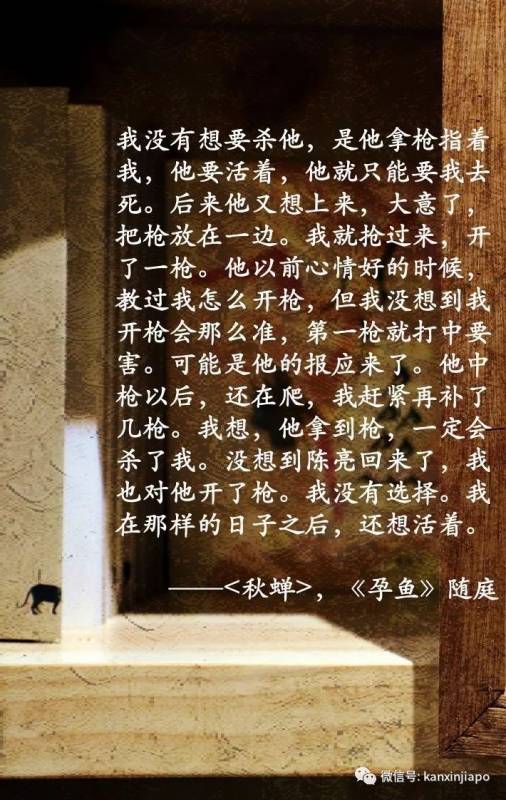 我没有想要杀他，是他拿枪指着
我，他要活着，他就只能要我去
死。后来他又想上来，大意了，
把枪放在一边。我就抢过来，开
了一枪。他以前心情好的时候，
教过我怎么开枪，但我没想到我
开枪会那么准，第一枪就打中要
害。可能是他的报应来了。他中
枪以后，还在爬，我赶紧再补了
几枪。我想，他拿到枪，一定会
杀了我。没想到陈亮回来了，我
也对他开了枪。我没有选择。我
在那样的日子之后，还想活着。
——<秋蝉>，《孕鱼》随庭
微信号: kanxinjiapo